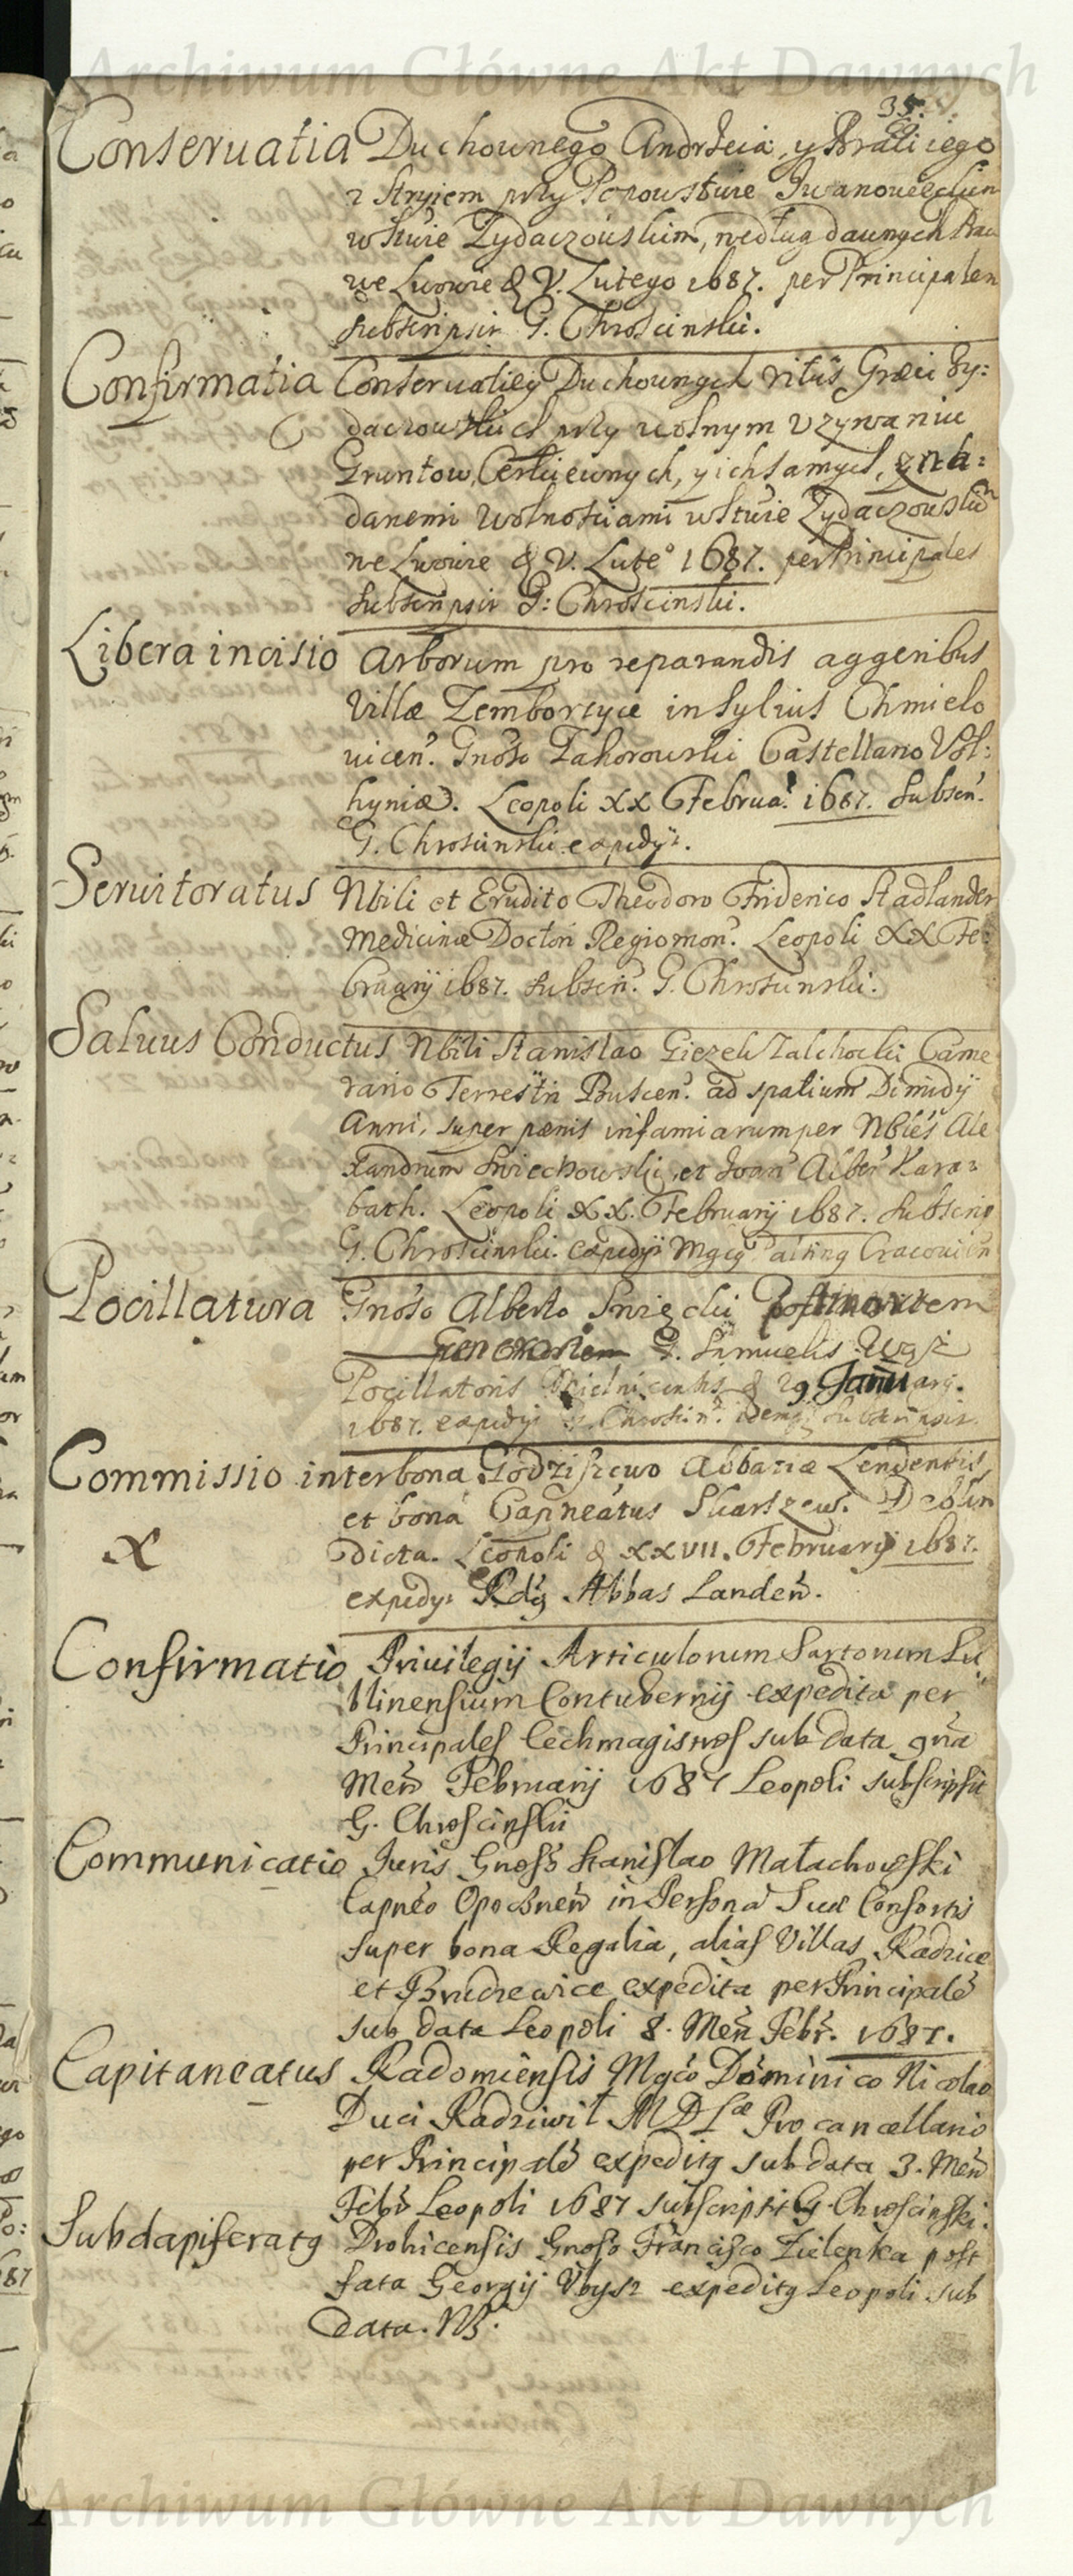 Archiwum Główne Akt Dawnych
35.
Conseruatia Duchownego Andrzeia, y Brati iego
z Stryiem przy Popowstwie Iwanoweckim
w Stwie Zydaczowskim, według dawnych Praw
we Lwowie d. V. Lutego 1687. per Principalem
subscripsit G. Chroscinski.
Confirmatia Conseruatiey Duchownych ritus Græci Zy:
daczowskich przy wolnym vzywaniu
Gruntow Cerkiewnych, y ich samych, z na:
danemi wolnosciami w Stwie Zydaczowskim
we Lwowie d. V. Luteo 1687. per Principales
subscripsit G: Chroscinski.
Libera incisio Arborum pro reparandis aggeribus
Villæ Zemborzyce in Syluis Chmielo
uicen. Gnoso Zahorowski Castellano Vol:
hyniæ. Leopoli XX Februa. 1687. Subscr.
G. Chroscinski expedyt.
Seruitoratus Nbili et Erudito Theodoro Friderico Stadlander
Medicinæ Doctori Regiomon. Leopoli XX Fe:
bruarij 1687. subscr. G. Chroscinski.
Saluus Conductus Nbili Stanislao Giezek Zalchocki Came
rario Terrestri Buscen. ad spatium Dimidij
Anni, super pænis infamiarum per Nbies Ale
xandrum Swiechowski, et Joan Alber Kara:
bath. Leopoli XX. Februarij 1687. Subscrip
G. Chroscinski. expedyt Mgcus Palatinus Cracouien
Pocillatura Gnoso Alberto Swięcki post mortem
G. Samuelis Węż
Pocillatoris Mielnicensis d 29 Januarij.
1687. expedyt G. Chroscin. idemq subscripsit.
Commissio inter bona Godziszewo Abbatiæ Lendensis,
et bona Capneatus Skarszew. Deblin
X dicta. Leopoli d XXVII. Februarij 1687.
expedyt Rdus Abbas Landen.
Confirmatio Priuilegij Articulorum Sartorum Lu
blinensium Contubernij expedita per
Principales Cechmagistros sub data 9na
Men Februarij 1687 Leopoli subscripsit
G. Chroscinski
Communicatio Iuris Gnoso Stanislao Małachowski
Capneo Opocznen in Persona Suæ Consortis
super bona Regalia, alias Villas Radzice
et Brudzewice expedita per Principale
sub data Leopoli 8. Men Febr. 1687.
Capitaneatus Radomiensis Mgco Dominico Nicolao
Duci Radziwił M D Læ Procancellario
per Principale expeditus sub data 3. Men
Feb Leopoli 1687 subscripsit G. Chroscinski.
Subdapiferatus Drohicensis Gnoso Francisco Zielenka post
fata Georgij Vbysz expeditus Leopoli sub
data. NB.
Archiwum Główne Akt Dawnych